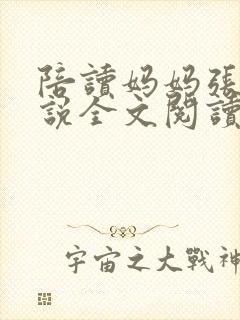 陪讀妈妈張
説全文閱讀
宇宙之大戰神